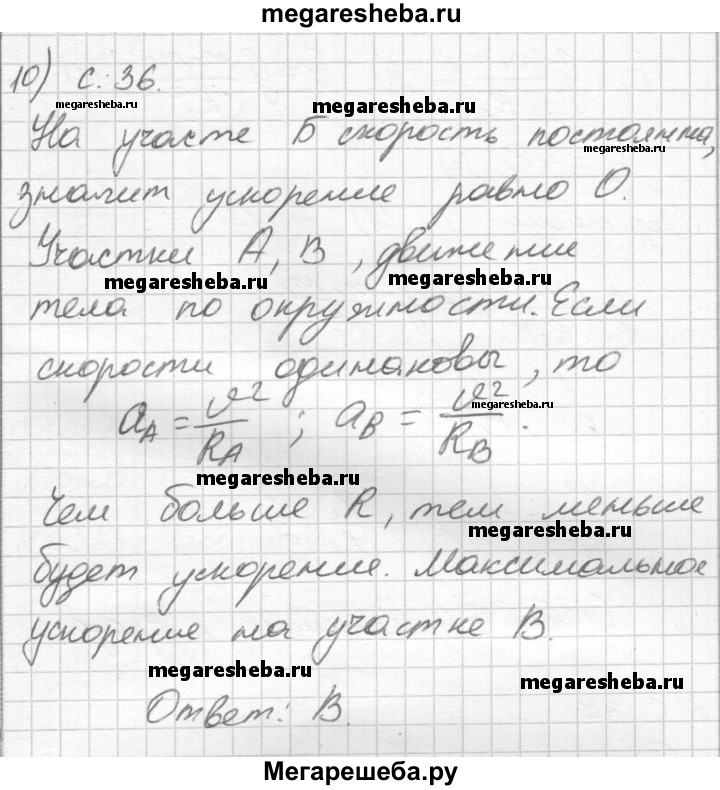 megaresheba.ru
10) с. 36.
megaresheba.ru
megaresheba.ru
На участе Б скорость постоянна,
megaresheba.ru
значит ускорение равно 0.
Участки А, В, движение
megaresheba.ru
megaresheba.ru
тела по окружности. Если
скорости одинаковы, то
a_A = v²/R_A ; a_B = v²/R_B.
megaresheba.ru
megaresheba.ru
Чем больше R, тем меньше
megaresheba.ru
будет ускорение. Максимальное
ускорение на участке В.
megaresheba.ru
megaresheba.ru
Ответ: В.
Мегарешеба.ру